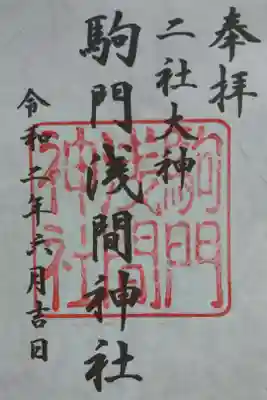 奉拝
二社大神
駒門浅間神社
令和二年六月吉日
駒門
浅間
神社